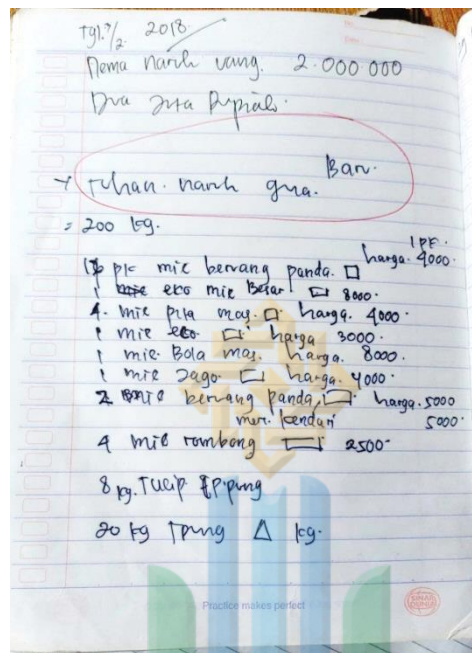 Tgl. 7/2. 2018
Nema narik uang. 2.000 000
Dua Juta Rupiah.
Baru.
Tuhan. narik gua.
= 200 kg.
1 pk.
pk mie beruang panda. harga. 4000.
1 eko mie Besar 8000.
4. mie pita mas. harga. 4000.
1 mie eko. harga 3000.
1 mie. Bola mas. harga. 8000.
1 mie Jago harga. 4000.
2 mie beruang panda. harga. 5000
mer. kendari 5000.
4 mie rombong 2500
8 kg. Tulip
20 kg Tpung kg.
Practice makes perfect
SINAR DUNIA